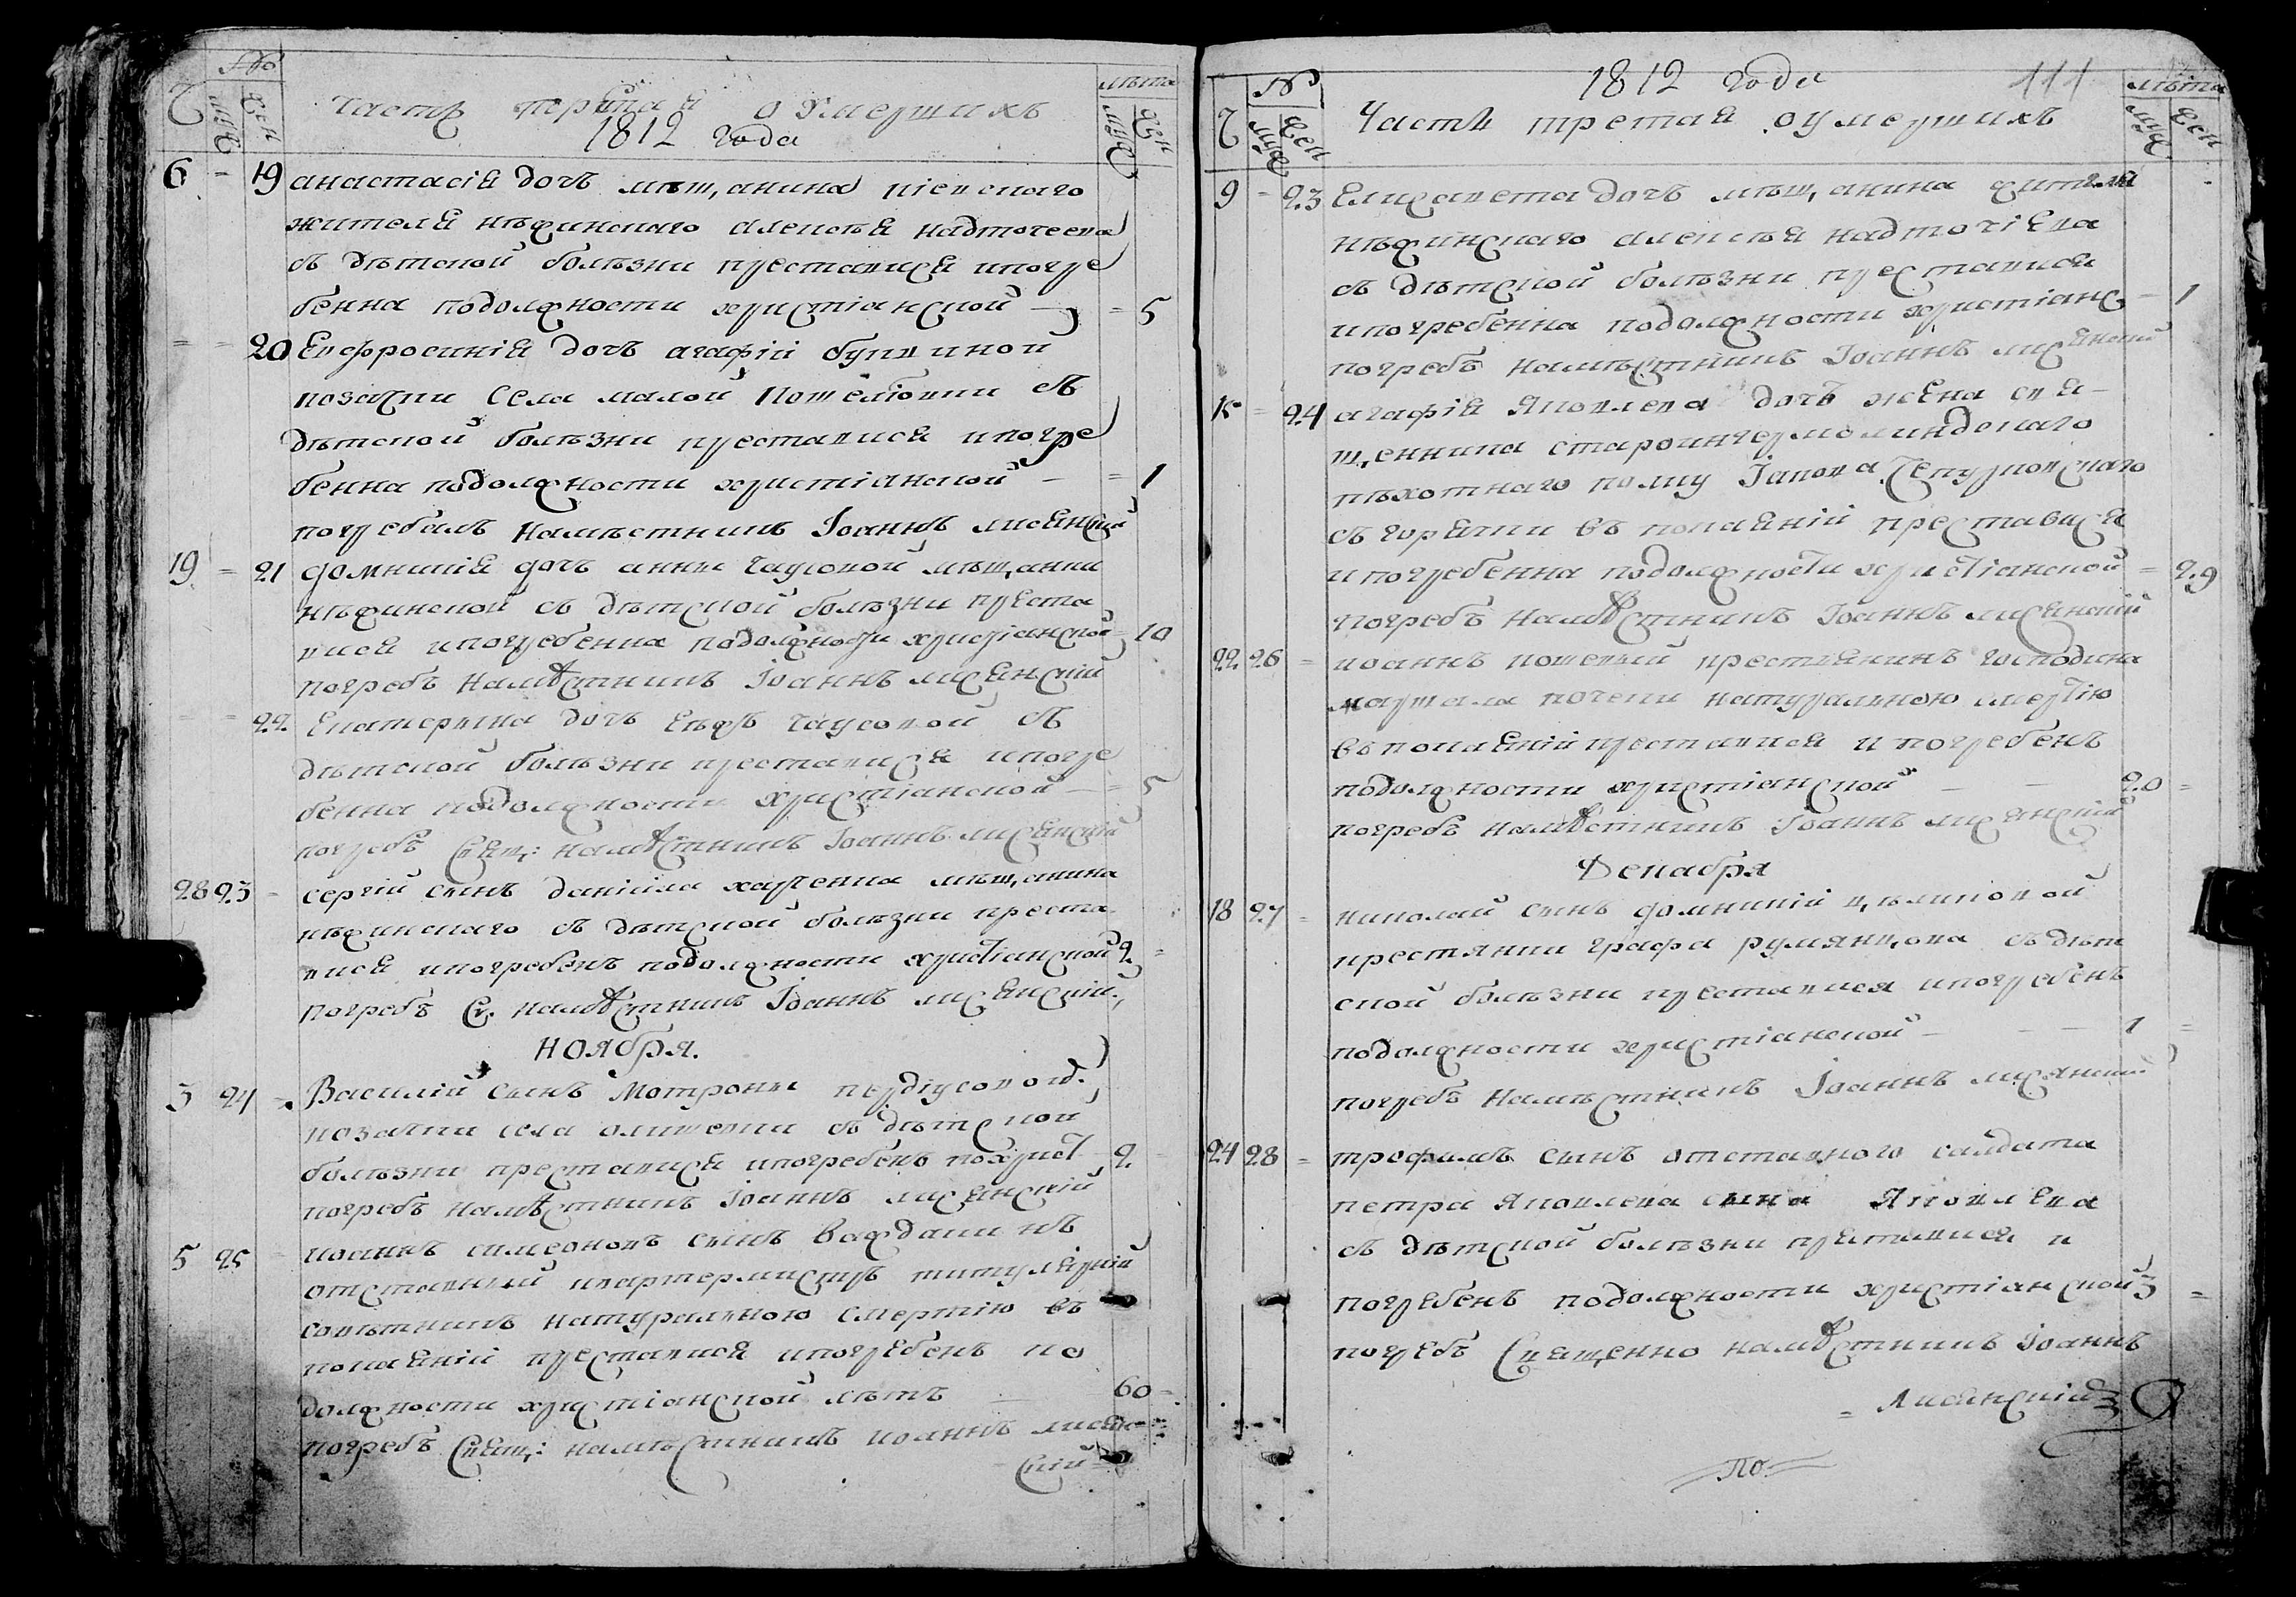 №
лѣта
Ч
муж
жен
муж
жен
Часть о умершихъ
1812 года
6 - 19 анастасія дочь мѣщанина кіевскаго
жителя нѣжинскаго алексѣя надточеева
съ дѣтской болѣзни преставися ипогре
бенна подолжности христіанской = 5
- - 20 Евфросинія дочъ агафіи
козачки села малой Кошелювки съ
дѣтской болѣзни преставися ипогре
бенна подолжности христіанской - = 1
погребалъ намѣстникъ Іоаннъ лисянскій
19 - 21 домникія дочъ анны чаусовой мѣщанки
нѣжинской съ дѣтской болѣзни преста
вися ипогребенна подолжности христіанской = 10
погребъ намѣстникъ Іоаннъ лисянскій
- - 22 Екатерина дочъ чаусовой съ
дѣтской болѣзни преставися ипогре
бенна подолжности христіанской - = 5
погребъ Свящ: намѣстникъ Іоаннъ лисянскій
28 23 - сергій сынъ даніила харченка мѣщанина
нѣжинскаго съ дѣтской болѣзни преста
вися ипогребенъ подолжности христіанской 2 =
погребъ Св. намѣстникъ Іоаннъ лисянскій
ноября.
3 24 - Василій сынъ Мотроны пердіусовой
козачки села олишевки съ дѣтской
болѣзни преставися ипогребенъ похрист 2 -
погребъ намѣстникъ Іоаннъ лисянскій
5 25 - иоаннъ симеоновъ сынъ
отставный квартермистръ титулярній
совѣтникъ натуральною смертію въ
покаяніи преставися ипогребенъ по
должности христіанской лѣтъ - 60 =
погребъ Свящ: намѣстникъ иоаннъ лисян
скій

№
1812 года
111
лѣта
Ч
муж
жен
муж
жен
Часть третая оумершихъ
9 = 23 Елисавета дочъ мѣщанина жителя
нѣжинскаго алексѣя надточіева
съ дѣтской болѣзни преставися
ипогребенна подолжности христіанс - 1
погребъ намѣстникъ Іоаннъ лисянскій
15 = 24 агафія Яковлева дочъ жена свя-
щенника староингермоландскаго
пѣхотнаго полку Іакова Чепурковскаго
съ горячки въ покаяніи преставися
и погребенна подолжности христіанской = 29
погребъ намѣстникъ Іоаннъ лисянскій
22 26 = иоаннъ кошевый крестянинъ господина
маршала почеки натуральною смертію
въ покаяніи преставися и погребенъ
подолжности христіанской - - 20 =
погребъ намѣстникъ Іоаннъ лисянскій
Декабря
18 27 = николай сынъ домникіи цѣликовой
крестянки графа румянцова съ дѣт
ской болѣзни преставися ипогребенъ
подолжности христіанской - - - 1 =
погребъ намѣстникъ Іоаннъ лисянскій
24 28 = трофимъ сынъ отставного салдата
петра Яковлева сына Яковлева
съ дѣтской болѣзни преставися и
погребенъ подолжности христіанской 3 =
погребъ Священно намѣстникъ Іоаннъ
= Лисянскій
По.